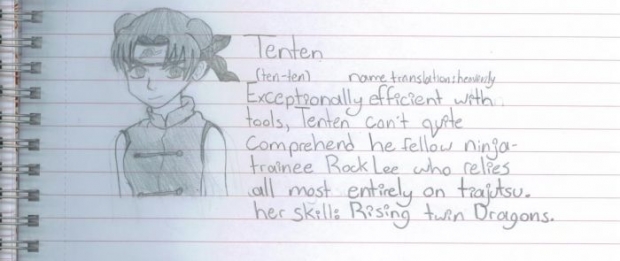 Tenten
(ten-ten) name translation: heavenly
Exceptionally efficient with
tools, Tenten can't quite
comprehend he fellow ninja-
trainee Rock Lee who relies
all most entirely on tiajutsu.
her skill: Rising twin Dragons.